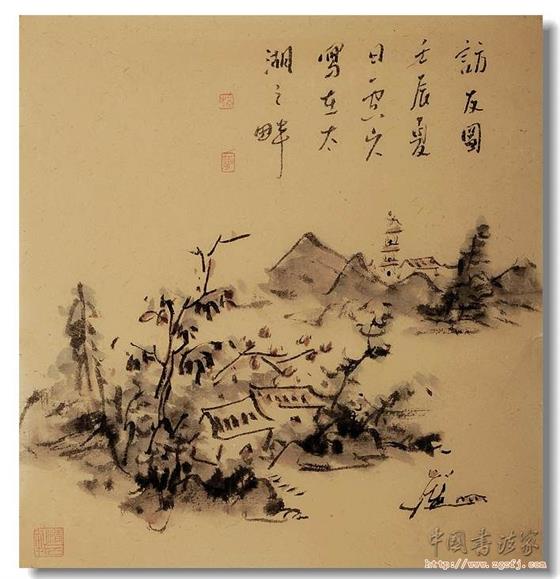 訪友圖
壬辰夏
日
寫在太
湖之畔
中國書法家
http://www.zgsfj.com